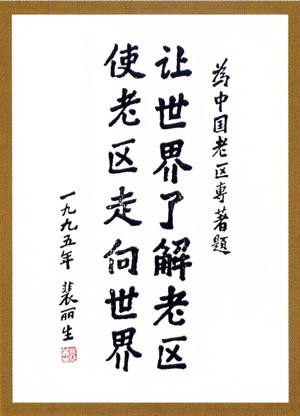 为中国老区専著題
让世界了解老区
使老区走向世界
一九九五年 裴丽生